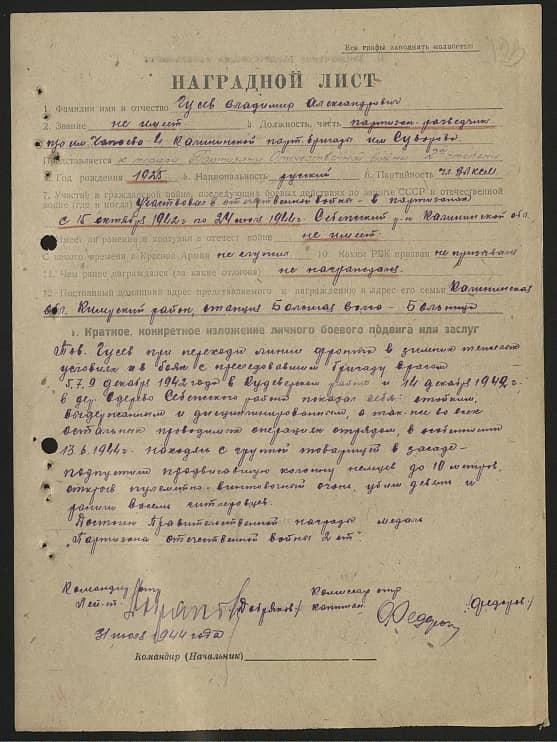 Все графы заполнять полностью
НАГРАДНОЙ ЛИСТ
1. Фамилия имя и отчество Гусев Владимир Александрович
2. Звание не имеет 3. Должность, часть партизан-разведчик
им. Чапаева 4 Калининской парт. бригады им Суворова
Представляется к медали Партизану Отечественной войны 2й степени
4. Год рождения 1925 5. Национальность русский 6. Партийность чл ВЛКСМ
7. Участие в гражданской войне, последующих боевых действиях по защите СССР и отечественной
войне (где и когда) Участвовал в отечественной войне - в партизанах
с 15 октября 1942 г по 24 июля 1944 г. Себежский р-н Калининской обл.
8. Имеет ли ранения и контузии в отечест войне не имеет.
9. С какого времени в Красной Армии не служил 10. Каким РВК призван не призывался
11. Чем ранее награждался (за какие отличия) не награждался.
12. Постоянный домашний адрес представляемого к награждению и адрес его семьи Калининская
обл. Кимрский район, станция Большая Волга - Больница
1. Краткое, конкретное изложение личного боевого подвига или заслуг
Тов. Гусев при переходе линии фронта в зимних тяжелых
условиях и в боях с преследовавшим бригаду врагом
5.7.9 декабря 1942 года в Кудеверском районе и 14 декабря 1942 г.
в дер. Себежского района показал себя: стойким,
выдержанным и дисциплинированным, а так-же во всех
остальных проводимых операциях отрядом, в особенности
13.6.1944 г. находясь с группой товарищей в засаде-
подпустили продвигавшую колонну немцев до 10 метров,
открыв пулеметно-винтовочный огонь, убили девять и
ранили восемь гитлеровцев.
Достоин Правительственной награды медаль
"Партизана отечественной войны 2 ст".
Командир отр. Комиссар отр
Лей-т (Добряков) капитан (Федоров)
31 июля 1944 года
Командир (Начальник)